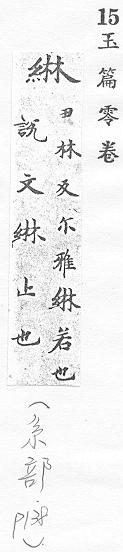 15玉篇零卷
綝
丑林反尒雅綝若也
說文綝止也
(糸部 P138)